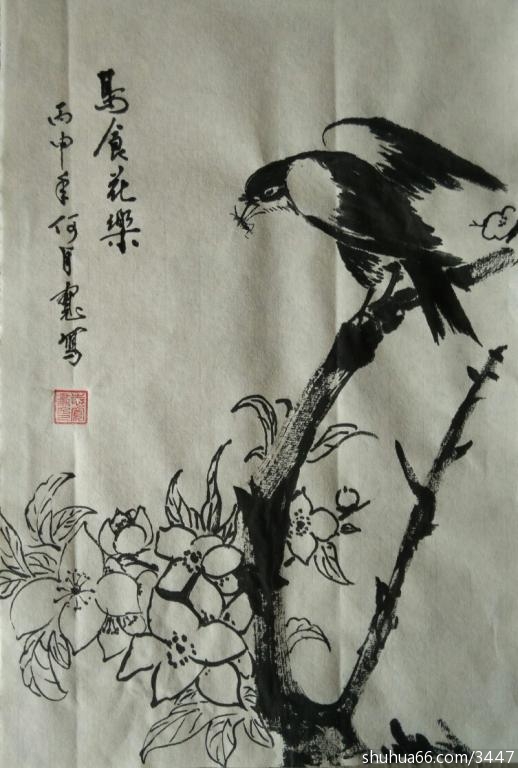 鸟食花樂
丙申年何月寫
shuhua66.com/3447